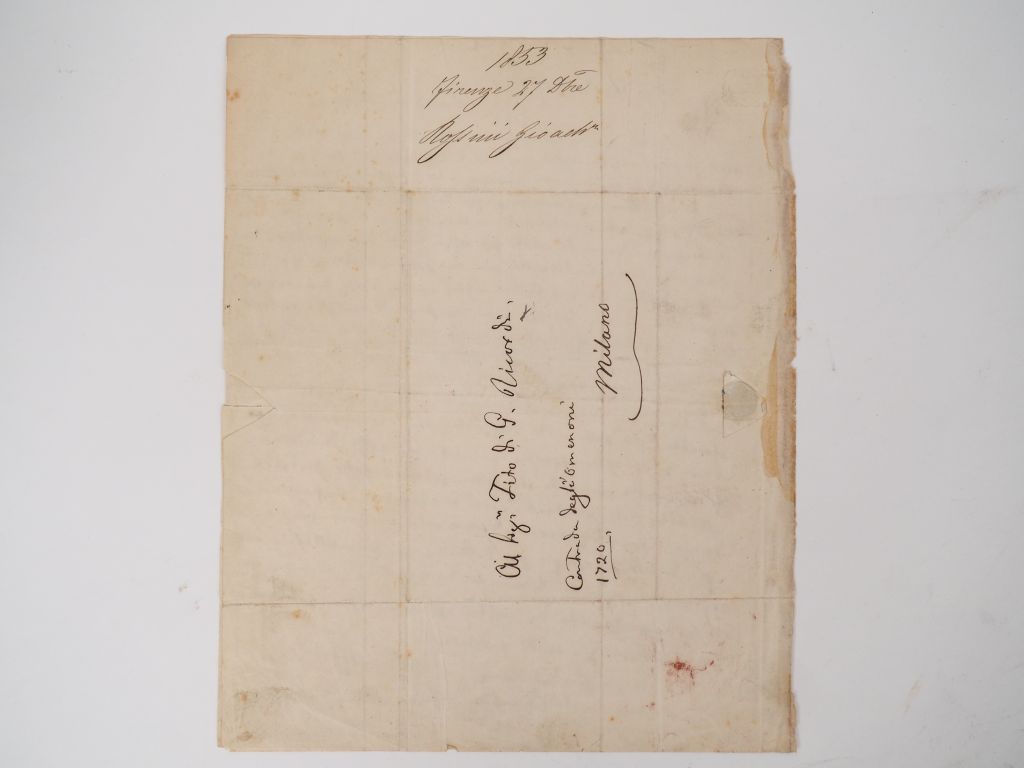 1853
Firenze 27 Dbre
Rossini Gioachº
Al Sigr Tito di G. Ricordi.
Contrada degli Omenoni
1720.
Milano